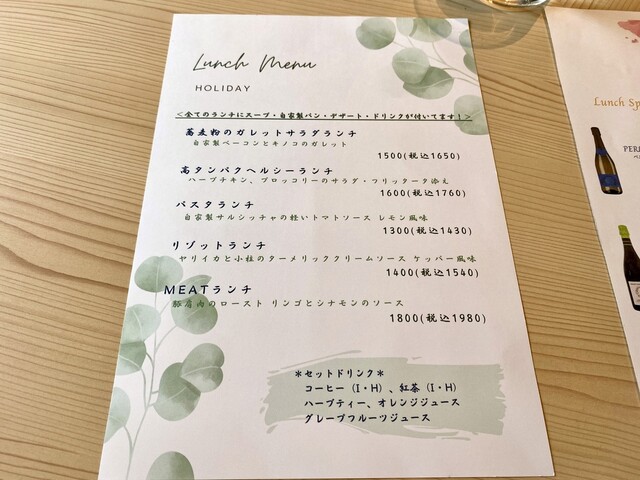 Lunch Menu
HOLIDAY
<全てのランチにスープ・自家製パン・デザート・ドリンクが付いてます！>
蕎麦粉のガレットサラダランチ
自家製ベーコンとキノコのガレット
1500(税込1650)
高タンパクヘルシーランチ
ハーブチキン、ブロッコリーのサラダ・フリッタータ添え
1600(税込1760)
パスタランチ
自家製サルシッチャの軽いトマトソース レモン風味
1300(税込1430)
リゾットランチ
ヤリイカと小柱のターメリッククリームソース ケッパー風味
1400(税込1540)
MEATランチ
豚肩肉のロースト リンゴとシナモンのソース
1800(税込1980)
＊セットドリンク＊
コーヒー（I・H）、紅茶（I・H）
ハーブティー、オレンジジュース
グレープフルーツジュース
Lunch Sp
PER